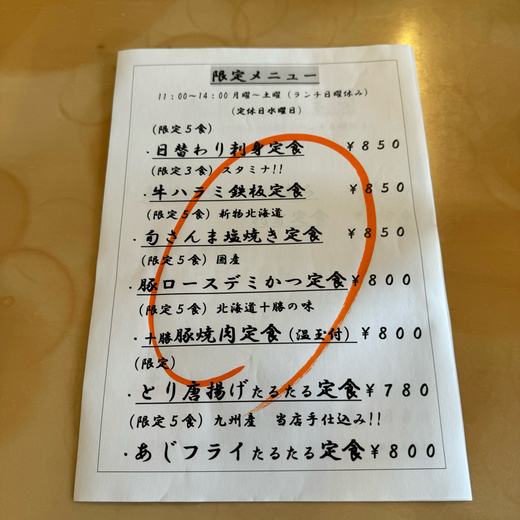 限定メニュー
11：00～14：00月曜～土曜（ランチ日曜休み）
（定休日水曜日）
（限定5食）
・日替わり刺身定食 ￥850
（限定3食）スタミナ!!
・牛ハラミ鉄板定食 ￥850
（限定5食）新物北海道
・旬さんま塩焼き定食 ￥850
（限定5食）国産
・豚ロースデミかつ定食￥800
（限定5食）北海道十勝の味
・十勝豚焼肉定食（温玉付）￥800
（限定）
・とり唐揚げたるたる定食￥780
（限定5食）九州産 当店手仕込み!!
・あじフライたるたる定食￥800